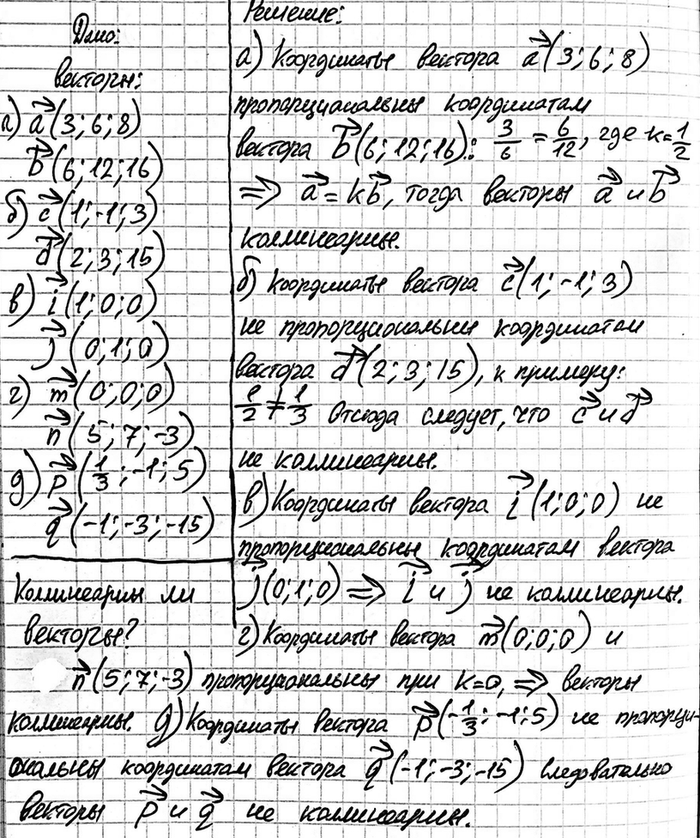 Дано:
векторы:
а) a(3;6;8)
b(6;12;16)
б) c(1;-1;3)
d(2;3;15)
в) i(1;0;0)
j(0;1;0)
г) m(0;0;0)
n(5;7;-3)
д) p(1/3;-1;5)
q(-1;-3;-15)
Коллинеарны ли
векторы?
Решение:
а) Координаты вектора a(3;6;8)
пропорциональны координатам
вектора b(6;12;16): 3/6 = 6/12, где k=1/2
⇒ a=kb, тогда векторы a и b
коллинеарны.
б) Координаты вектора c(1;-1;3)
не пропорциональны координатам
вектора d(2;3;15), к примеру:
1/2 ≠ 1/3 Отсюда следует, что c и d
не коллинеарны.
в) Координаты вектора i(1;0;0) не
пропорциональны координатам вектора
j(0;1;0) ⇒ i и j не коллинеарны.
г) Координаты вектора m(0;0;0) и
n(5;7;-3) пропорциональны при k=0, ⇒ векторы
коллинеарны. д) Координаты вектора p(-1/3;-1;5) не пропорци-
ональны координатам вектора q(-1;-3;-15) следовательно
векторы p и q не коллинеарны.